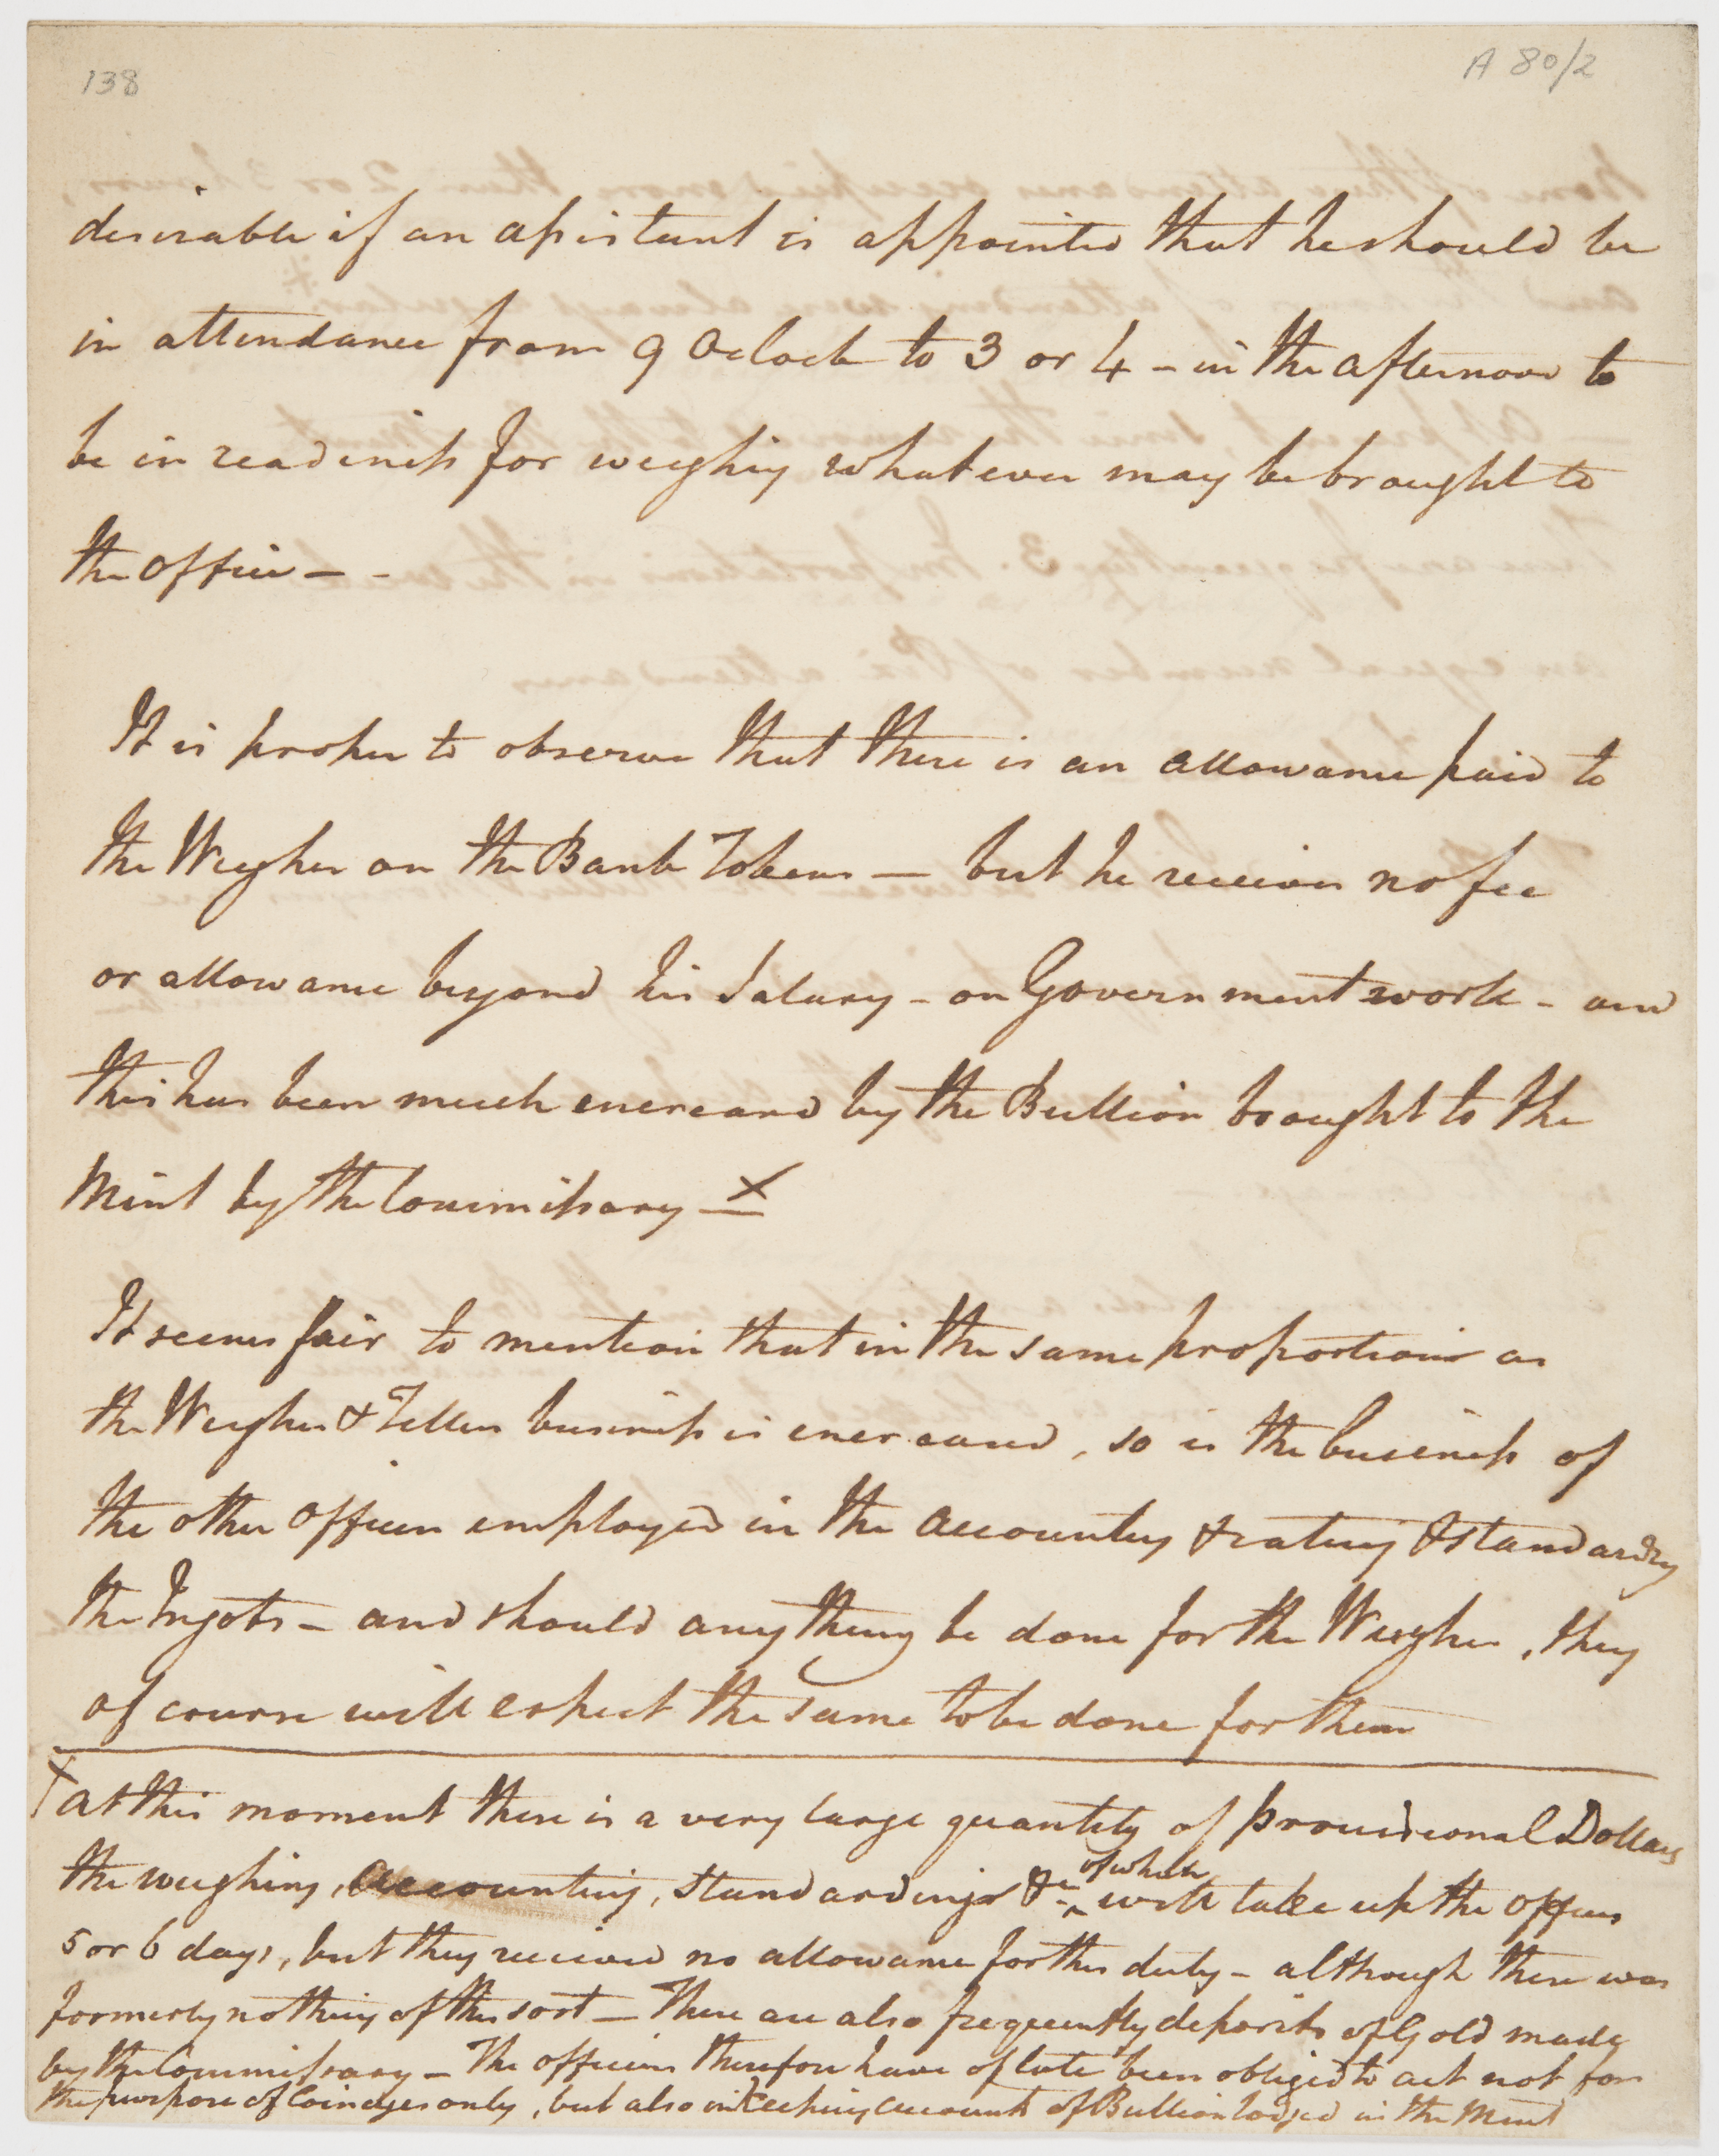 138
A 80/2
desirable if an assistant is appointed that he should be
in attendance from 9 Oclock to 3 or 4 - in the afternoon to
be in readiness for weighing whatever may be brought to
the office - -
It is proper to observe that there is an allowance paid to
the Weigher on the Bank Tokens — but he receives no fee
or allowance beyond his Salary - on Government work - and
this has been much encreased by the Bullion brought to the
Mint by the Commissary - X
It seems fair to mention that in the same proportion as
the Weigher & Teller business is encreased, so is the business of
the other officers employed in the accounting & rating & standarding
the Ingots - and should any thing be done for the Weigher, they
of course will expect the same to be done for them
X at this moment there is a very large quantity of provisional Dollars
the weighing, accounting, standardings &c of which will take up the officers
5 or 6 days, but they receive no allowance for this duty - although there was
formerly nothing of this sort — There are also frequently deposits of Gold made
by the Commissary - The officers therefore have of late been obliged to act not for
the purpose of Coinages only, but also in Keeping accounts of Bullion lodged in the Mint